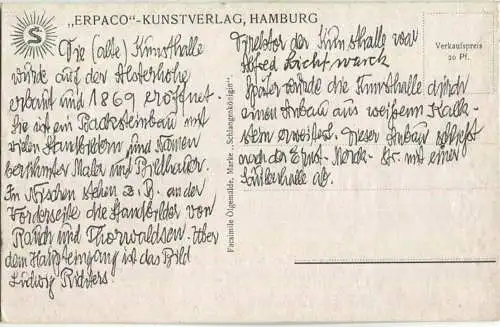 „ERPACO"-KUNSTVERLAG, HAMBURG
S
Die (alte) Kunsthalle
wurde auf der Alsterhöhe
erbaut und 1869 eröffnet.
Sie ist ein Backsteinbau mit
vielen Standbildern und Namen
berühmter Maler und Bildhauer.
Im Nischen stehen z. B. an der
Vorderseite die Standbilder von
Rauch und Thorwaldsen. Über
dem Haupteingang ist das Bild
Ludwig Richters.
Facsimile Ölgemälde, Marke „Schlangenkönigin".
Direktor der Kunsthalle war
Alfred Lichtwark
Später wurde die Kunsthalle durch
einen Anbau aus weißem Kalk-
stein erweitert. Dieser Anbau schließt
nach der Ernst-Merck-Str. mit einer
Säulenhalle ab.
Verkaufspreis
20 Pf.